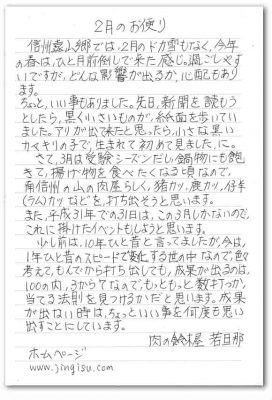 2月のお便り
信州霧山郷では、2月のドカ雪もなく、今年
の春は、ひと月前倒しで来た感じ。過ごしやす
いですが、どんな影響が出るか、心配もあり
ます。
ちょっと、いい事もありました。先日、新聞を読もう
としたら、黒く小さいものが、紙面を歩いてい
ました。アリが出て来たと思ったら、小さな黒い
カマキリの子で、生まれて初めて見ました、に。
さて、3月は受験シーズンだし鍋物にも飽
きて、揚げ物を食べたくなる頃なので、
南信州の山の肉屋らしく、猪カツ、鹿カツ、仔羊
(ラム)カツなどを、打ち出そうと思います。
また、平成31年での31日は、この3月しかないので、
これに掛けたイベントもしようと思います。
少し前は、10年ひと昔と言ってましたが、今は、
1年ひと昔のスピードで変化する世の中なので、色々
考えて、もんでから打ち出しても、成果が出るのは、
100の内、3から7なので、もっともっと数打つか、
当てる法則を見つけるかだと思います。成果
が出ない時は、ちょっといい事を何度も思い
出すことにしています。
肉の鈴木屋 若旦那
ホームページ
www.jingisu.com